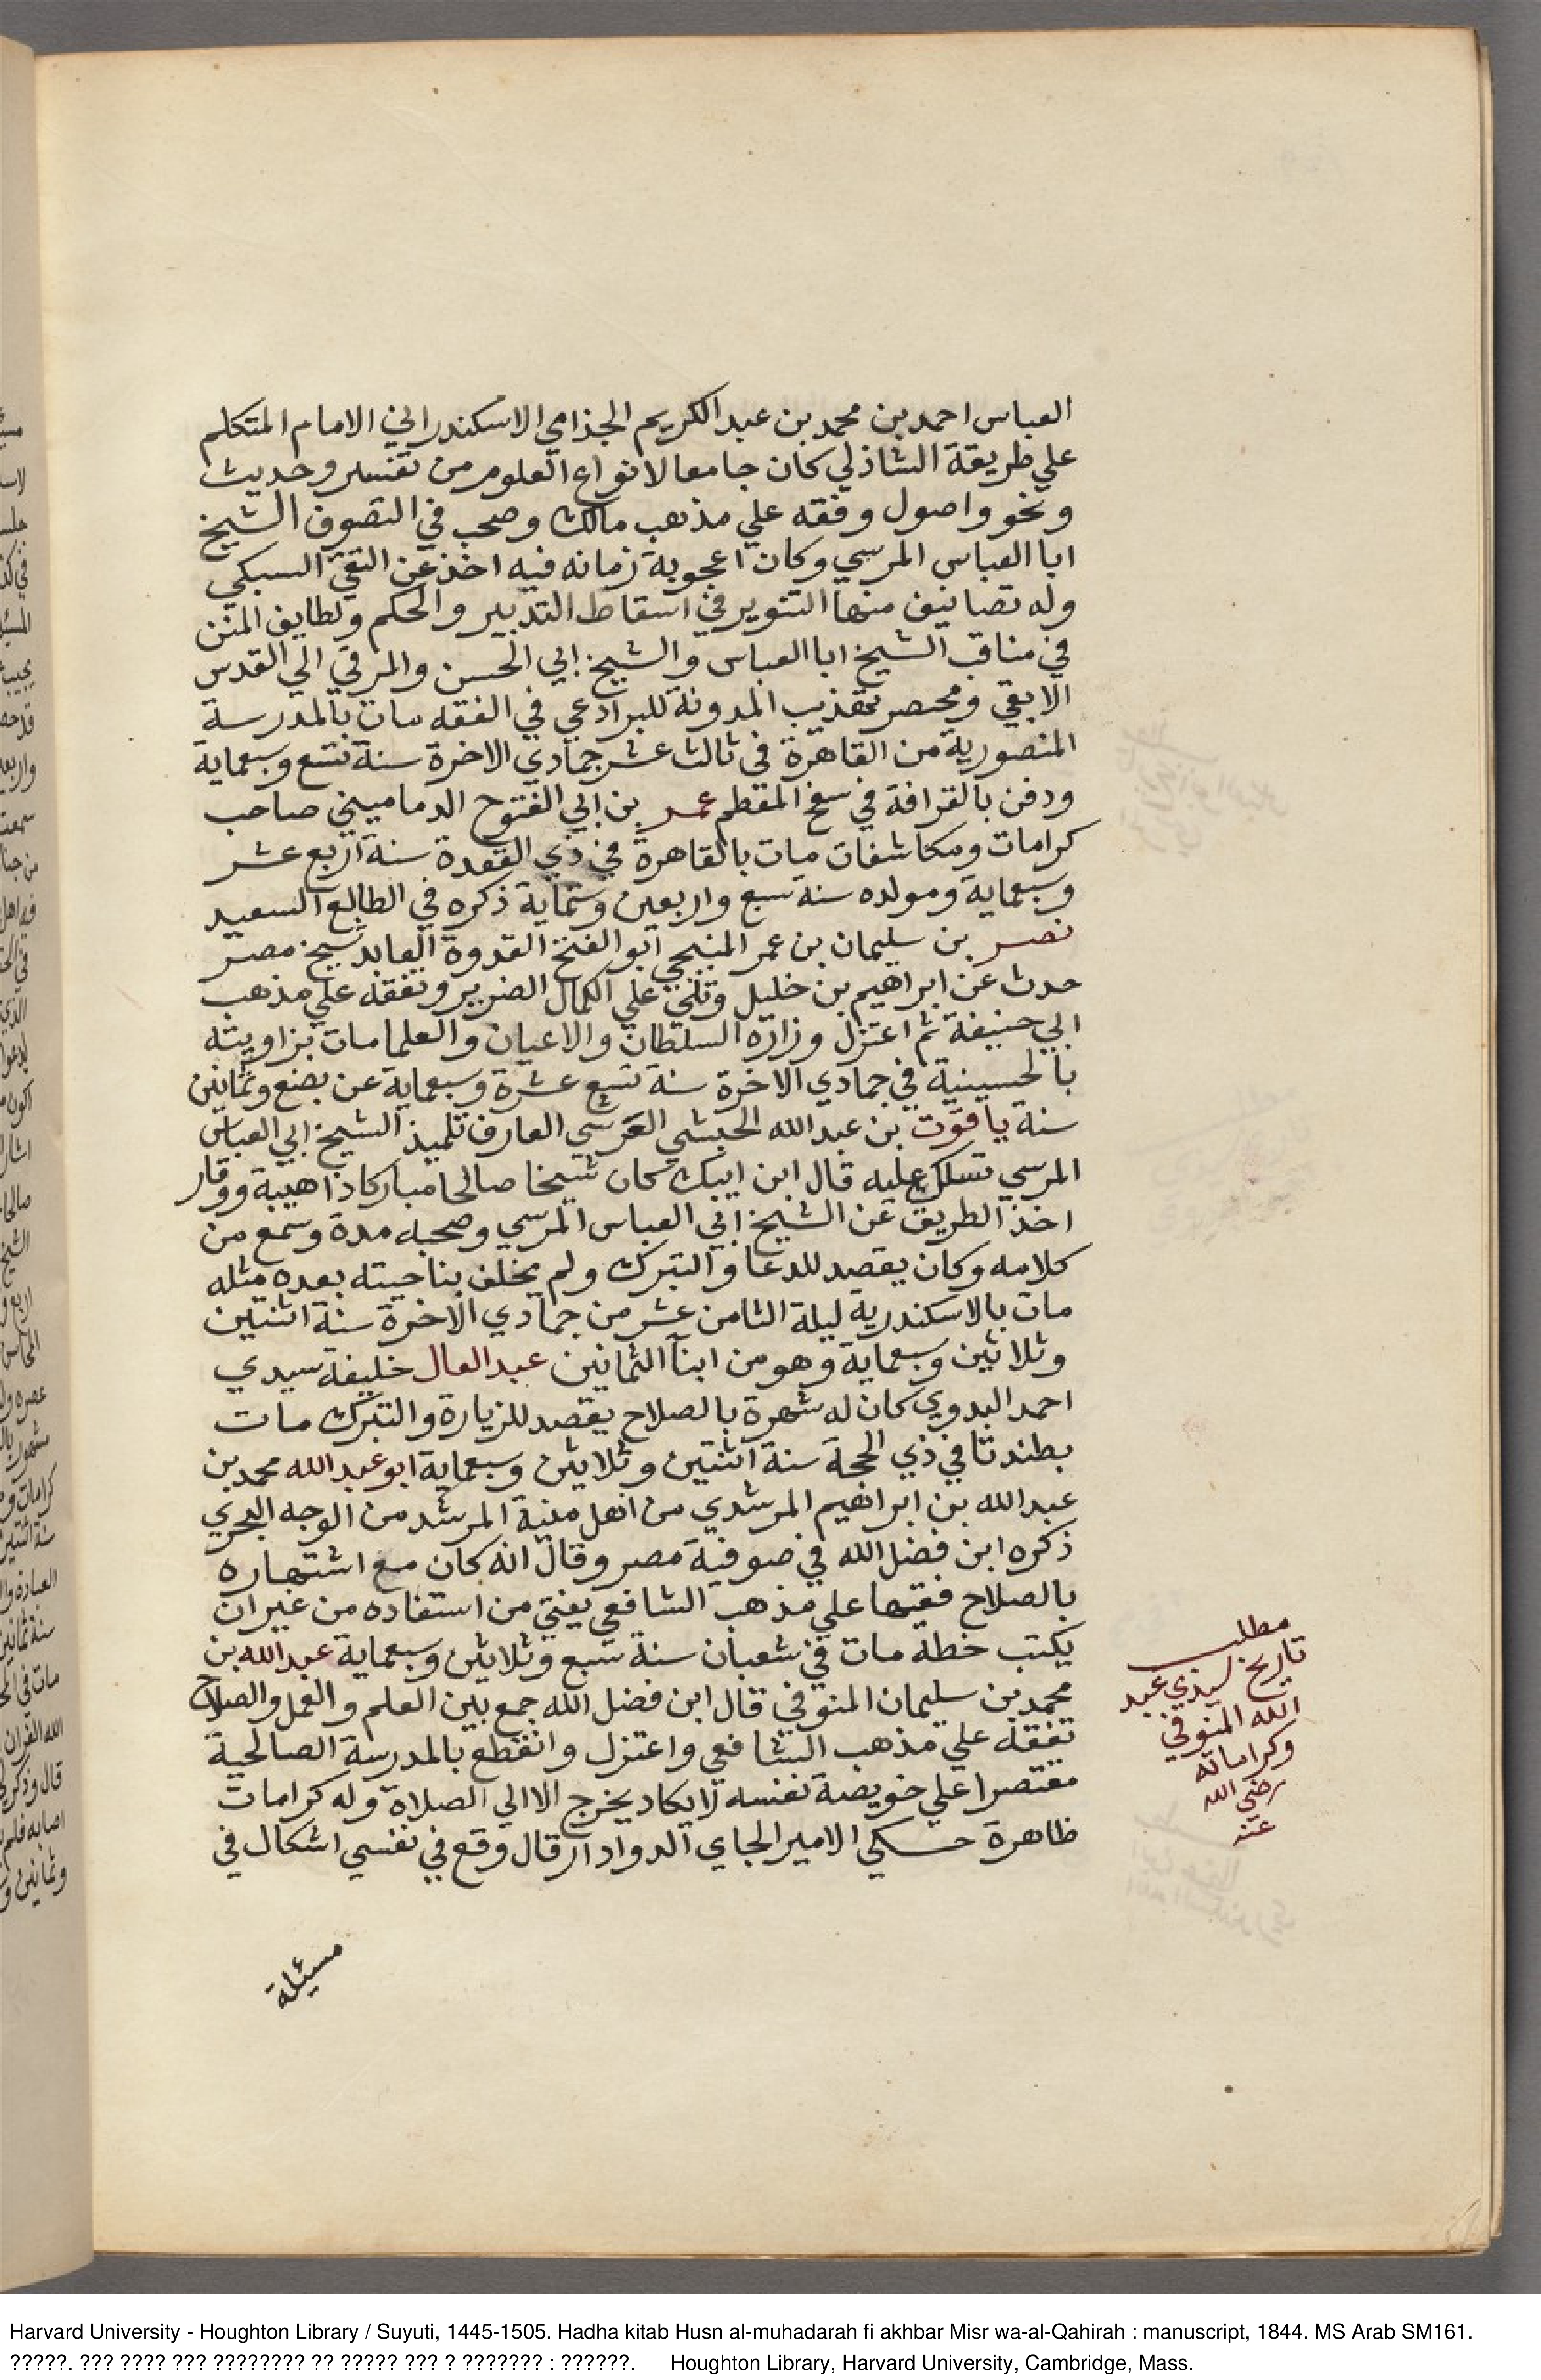 العباس احمد بن محمد بن عبد الكريم الجذامي الاسكندراني الامام المتكلم
علي طريقة الشاذلي كان جامعا لانواع العلوم من تفسير وحديث
ونحو واصول وفقه علي مذهب مالك وصحب في التصوف الشيخ
ابا العباس المرسي وكان اعجوبة زمانه فيه اخذ عن التقي السبكي
وله تصانيف منها التنوير في اسقاط التدبير والحكم ولطايف المنن
في مناقب الشيخ ابا العباس والشيخ ابي الحسن والمرقي الي القدس
الابقي ومختصر تهذيب المدونة للبرادعي في الفقه مات بالمدرسة
المنصورية من القاهرة في ثالث عشر جمادي الاخرة سنة تسع وسبعماية
ودفن بالقرافة في سفح المقطم عمر بن ابي الفتوح الدماميني صاحب
كرامات ومكاشفات مات بالقاهرة في ذي القعدة سنة اربع عشر
وسبعماية ومولده سنة سبع واربعين وستماية ذكره في الطالع السعيد
نصر بن سليمان بن عمر المنبجي ابو الفتح القدوة العابد شيخ مصر
حدث عن ابراهيم بن خليل وتلي علي الكمال الضرير وتفقه علي مذهب
ابي حنيفة ثم اعتزل وزاره السلطان والاعيان والعلما مات بزاويته
بالحسينية في جمادي الاخرة سنة تسع عشرة وسبعماية عن بضع وثمانين
سنة ياقوت بن عبد الله الحبشي العرشي العارف تلميذ الشيخ ابي العباس
المرسي تسلك عليه قال ابن ايبك كان شيخا صالحا مباركا ذا هيبة ووقار
اخذ الطريق عن الشيخ ابي العباس المرسي وصحبه مدة وسمع من
كلامه وكان يقصد للدعا والتبرك ولم يخلف بناحيته بعده مثله
مات بالاسكندرية ليلة الثامن عشر من جمادي الاخرة سنة اثنتين
وثلاثين وسبعماية وهو من ابنآ الثمانين عبد العال خليفة سيدي
احمد البدوي كان له شهرة بالصلاح يقصد للزيارة والتبرك مات
بطندتا في ذي الحجة سنة اثنتين وثلاثين وسبعماية ابو عبد الله محمد بن
عبد الله بن ابراهيم المرشدي من اهل منية المرشد من الوجه البحري
ذكره ابن فضل الله في صوفية مصر وقال انه كان مع اشتهاره
بالصلاح فقيها علي مذهب الشافعي يفتي من استفاده من غير ان
يكتب خطه مات في شعبان سنة سبع وثلاثين وسبعماية عبد الله بن
محمد بن سليمان المنوفي قال ابن فضل الله جمع بين العلم والعمل والصلاح
تفقه علي مذهب الشافعي واعتزل وانقطع بالمدرسة الصالحية
مقتصرا علي خويصة نفسه لا يكاد يخرج الا الي الصلاة وله كرامات
ظاهرة حكي الامير الجاي الدوادار قال وقع في نفسي اشكال في
مسئلة
مطلب
تاريخ لسيدي عبد
الله المنوفي
وكراماته
رضي الله
عنه
Harvard University - Houghton Library / Suyuti, 1445-1505. Hadha kitab Husn al-muhadarah fi akhbar Misr wa-al-Qahirah : manuscript, 1844. MS Arab SM161.
?????. ??? ???? ??? ???????? ?? ????? ??? ? ??????? : ??????. Houghton Library, Harvard University, Cambridge, Mass.